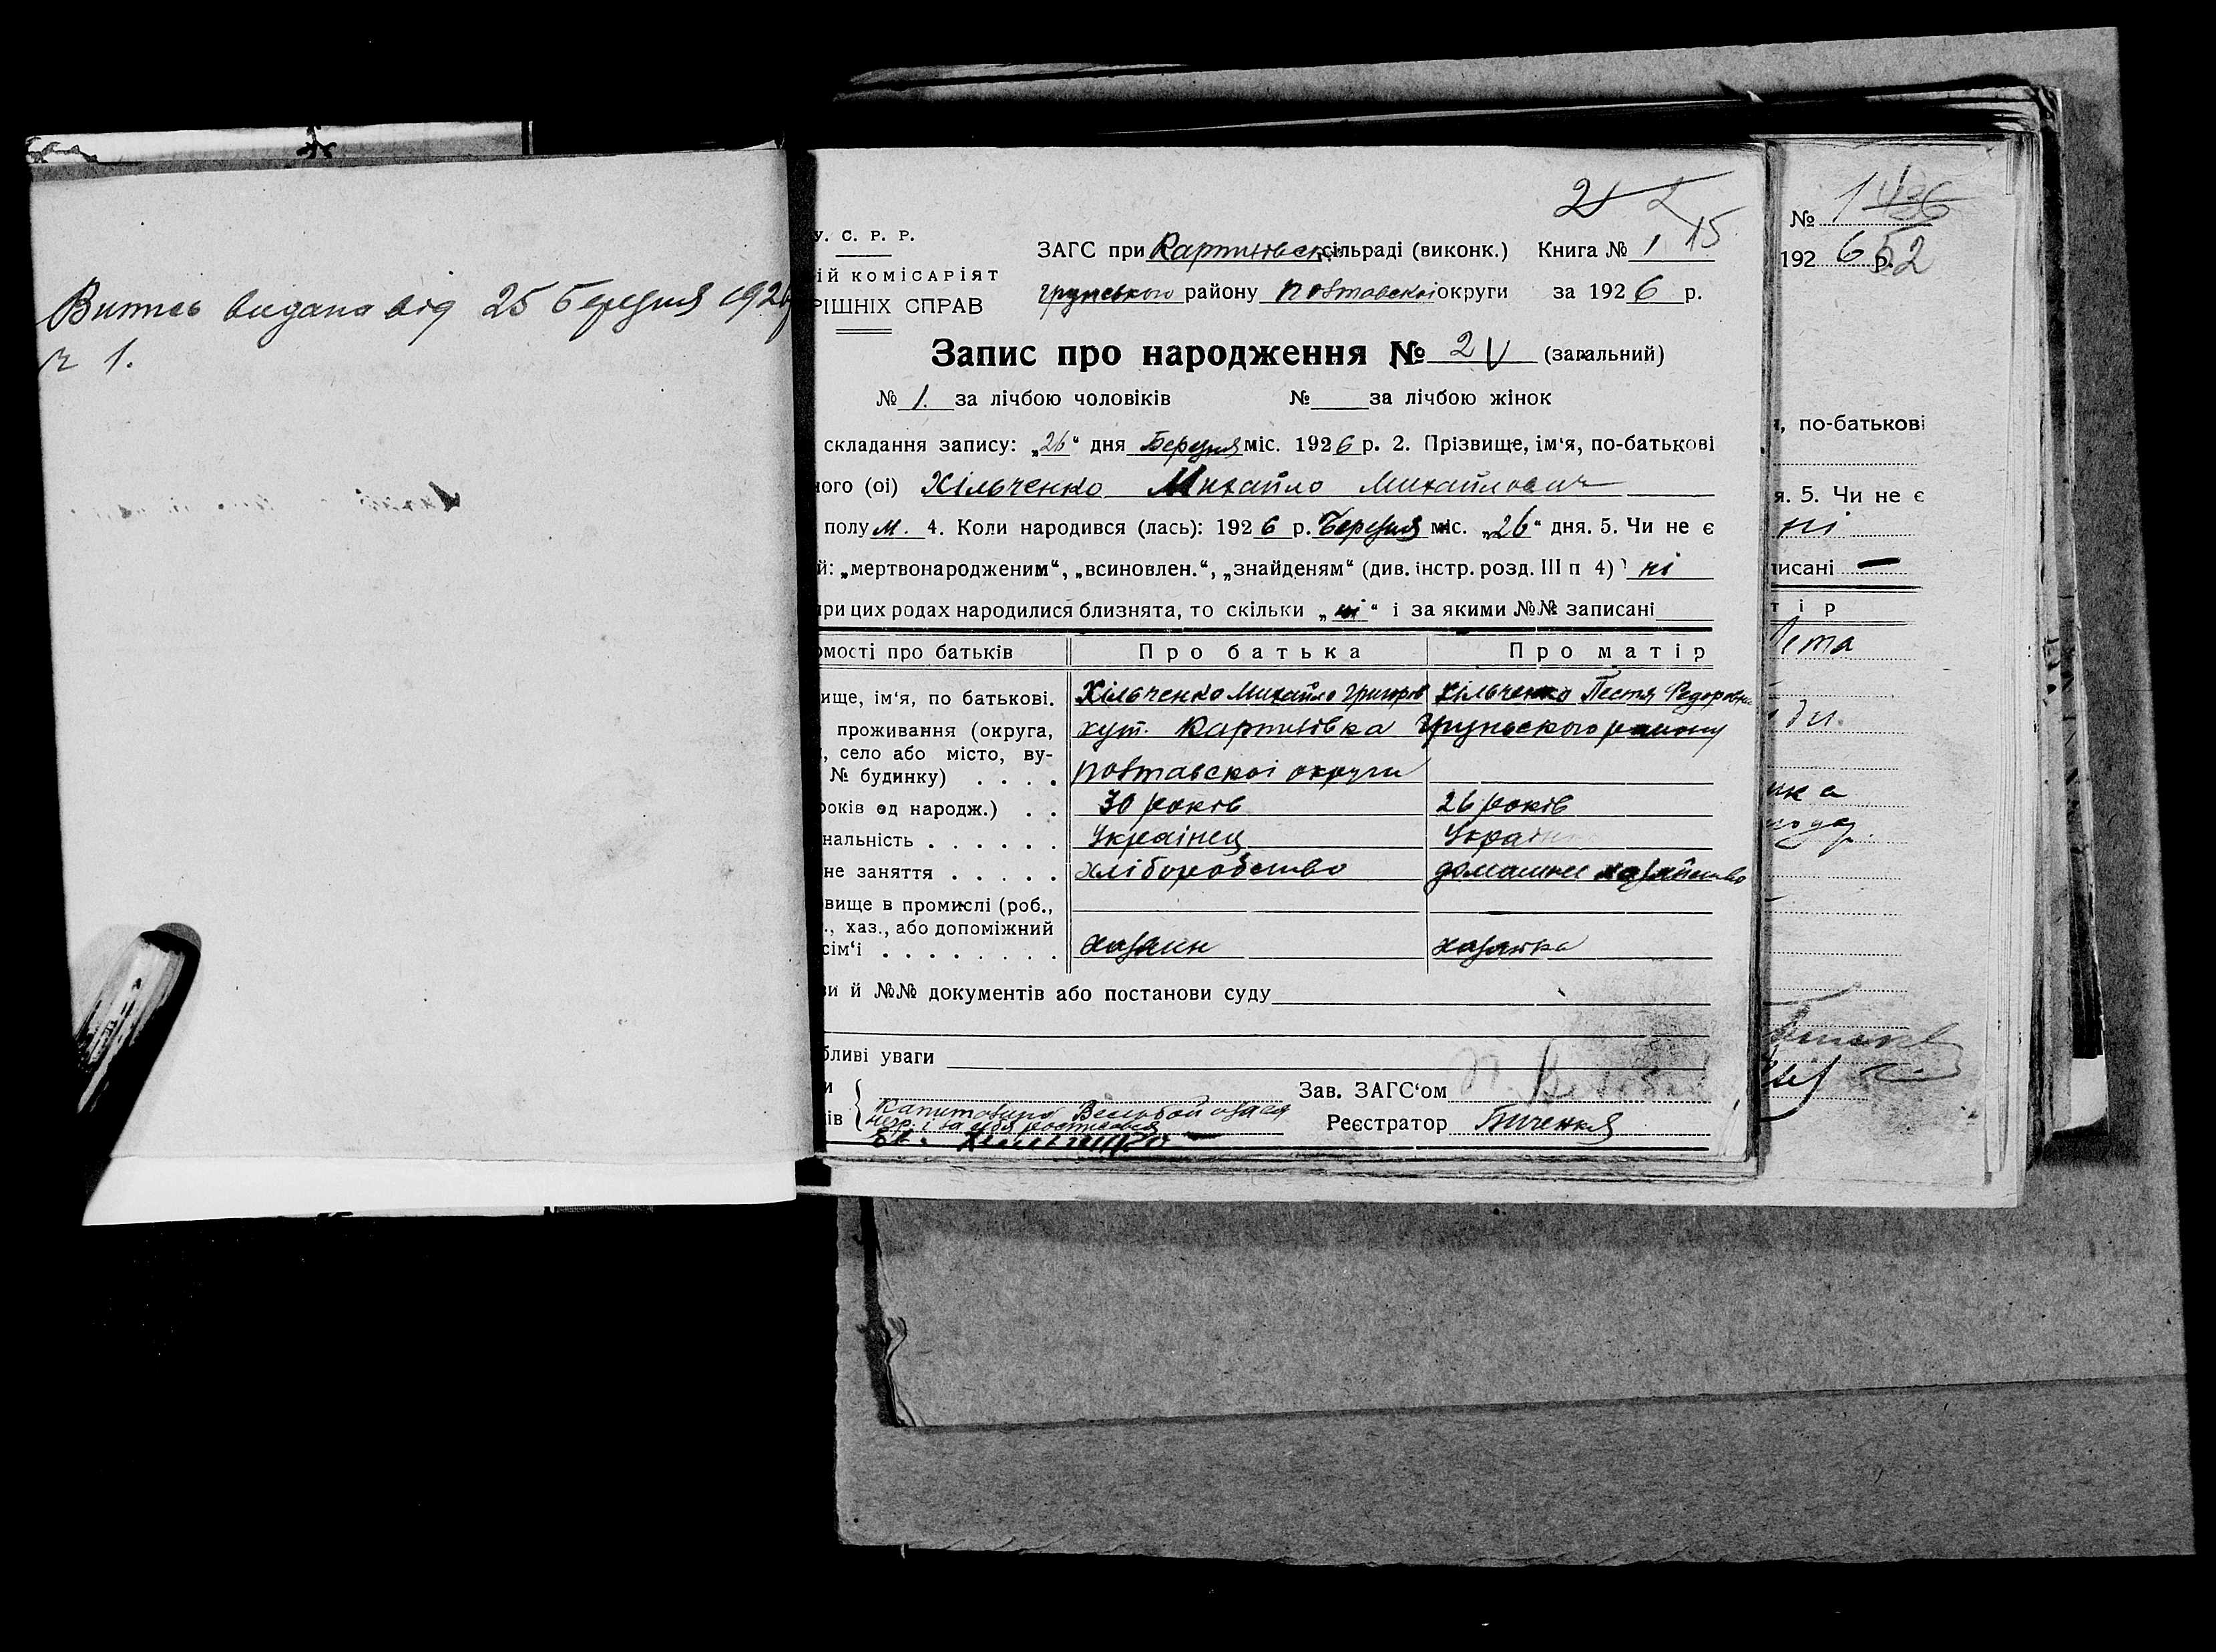 видана від 25 Березня 192
1.
2
15
У. С. Р. Р.
ЗАГС при сільраді (виконк.) Книга № 1
ІЙ КОМІСАРІЯТ
Грунського району Повтавської округи за 1926 р.
РІШНІХ СПРАВ
Запис про народження № 2 (загальний)
№ 1. за лічбою чоловіків № за лічбою жінок
складання запису: „26“ дня Березня міс. 1926 р. 2. Прізвище, ім‘я, по-батькові
ного (оі) Хільченко Михайло Михайлович
полу м. 4. Коли народився (лась): 1926 р. Березня міс. „26“ дня. 5. Чи не є
й: „мертвонародженим“, „всиновлен.“, „знайденям“ (див. інстр. розд. III п 4) ні
при цих родах народилися близнята, то скільки „ні“ і за якими №№ записані
омості про батьків Про батька Про матір
ище, ім‘я, по батькові. Хільченко Михайло Григоров Хільченко Федоровна
проживання (округа, хут. Картинівка Грунського району
, село або місто, ву-
№ будинку) . . . . Повтавскоі округи
років од народж.) . . 30 років 26 років
нальність . . . . . . Українец Україн
не заняття . . . . . хліборобство домашне хазяйство
вище в промислі (роб.,
., хаз., або допоміжний
сім‘ї . . . . . . . . хазяин хазяйка
ви й №№ документів або постанови суду
бливі уваги
и
Зав. ЗАГС‘ом
ів
Реєстратор
№ 1 436
192 6 р. 52
, по-батькові
я. 5. Чи не є
ні
писані —
т і р